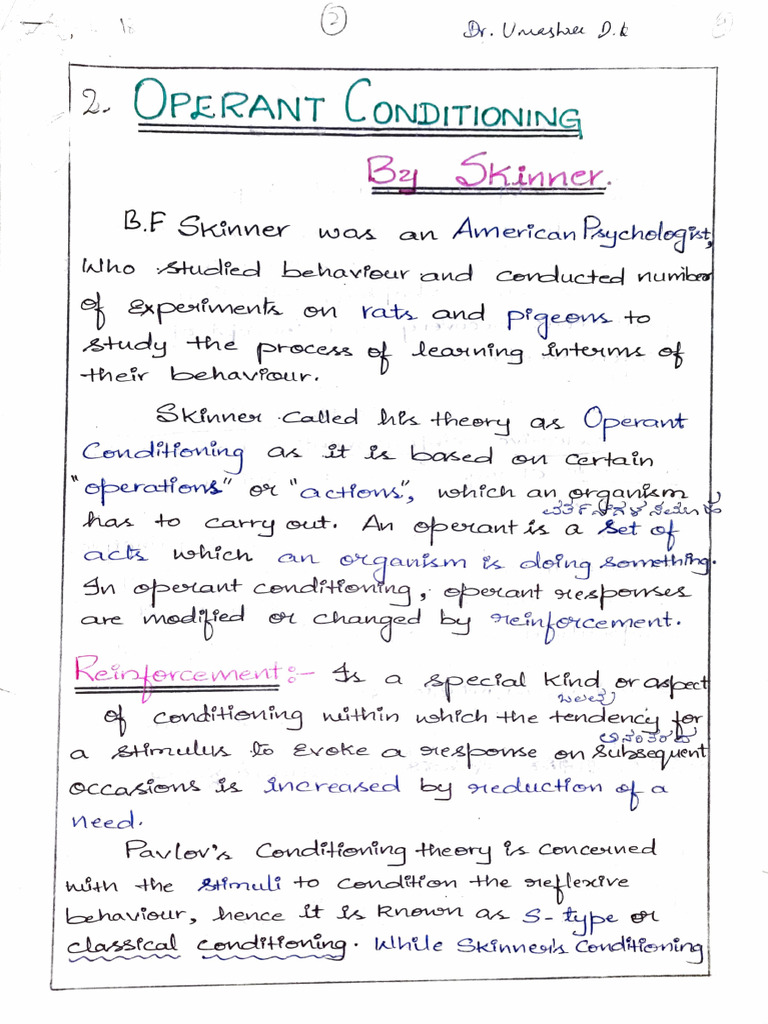 2
Dr. Umashree D.k
2. OPERANT CONDITIONING
By Skinner.
B.F Skinner was an American Psychologist,
Who studied behaviour and conducted number
of experiments on rats and pigeons to
study the process of learning interms of
their behaviour.
Skinner called his theory as Operant
Conditioning as it is based on certain
"operations" or "actions", which an organism
has to carry out. An operant is a set of
acts which an organism is doing something.
In operant conditioning, operant responses
are modified or changed by reinforcement.
Reinforcement:- Is a special kind or aspect
ಒಲವು
of conditioning within which the tendency for
ಅನಂತರದ
a stimulus to evoke a response on subsequent
occasions is increased by reduction of a
need.
Pavlov's Conditioning theory is concerned
with the stimuli to condition the reflexive
behaviour, hence it is known as S-type or
classical conditioning. While Skinner's Conditioning